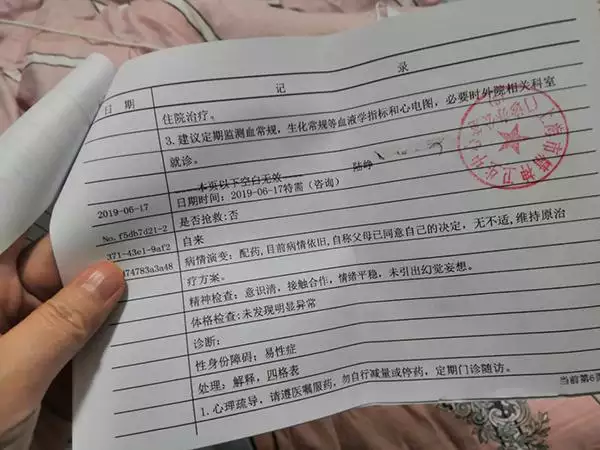 日期 记录
住院治疗。
3.建议定期监测血常规，生化常规等血液学指标和心电图，必要时外院相关科室
就诊。
本页以下空白无效
陆峥
2019-06-17 日期时间：2019-06-17特需（咨询）
No.f5db7d21-2 是否抢救:否
371-43e1-9af2 自来
74783a3a48 病情演变：配药,目前病情依旧,自称父母已同意自己的决定，无不适,维持原治
疗方案。
精神检查：意识清，接触合作，情绪平稳，未引出幻觉妄想。
体格检查:未发现明显异常
诊断：
性身份障碍：易性症
处理：解释，四格表
1.心理疏导，请遵医嘱服药，勿自行减量或停药，定期门诊随访。
当前第6页
市精神卫生中心